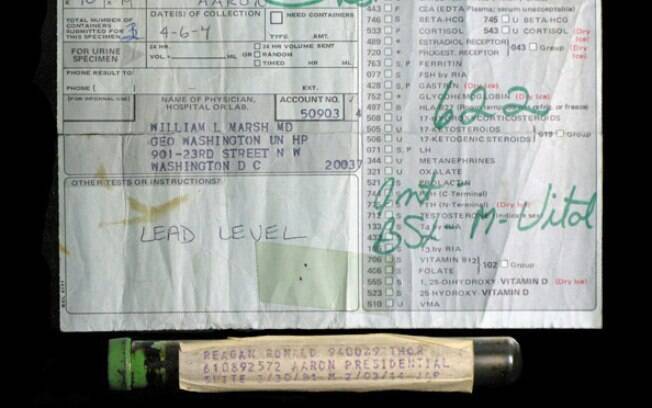 AARON
443
CEA (EDTA Plasma; serum unacceptable)
DATE(S) OF COLLECTION
NEED CONTAINERS
746 S BETA-HCG 745 U BETA-HCG
TOTAL NUMBER OF
CONTAINERS
SUBMITTED FOR
THIS SPECIMEN 3
4-6-4
TYPE AMT.
533 CORTISOL 543 U CORTISOL (Dry Ice)
489 ESTRADIOL RECEPTOR
720 PROGEST. RECEPTOR 043 Group (Dry Ice)
FOR URINE
SPECIMEN
24 HR.
VOL. ML
OR
24 HR VOLUME SENT
RANDOM
TIMED HR ML
763 S, P FERRITIN
077 S FSH by RIA
PHONE RESULT TO:
PHONE ( EXT.
428 S GASTRIN (Dry Ice)
752 GLYCOHEMOGLOBIN (Dry Ice)
622
(FOR INTERNAL USE)
NAME OF PHYSICIAN,
HOSPITAL OR LAB.
ACCOUNT NO.
50903
497
508 U
505 U
506 U 17-KETOGENICSTEROIDS
Group
WILLIAM L MARSH MD
GEO WASHINGTON UN HP
901-23RD STREET N W
WASHINGTON D C 20037
071 S, P LH
344 U METANEPHRINES
321 U OXALATE
521 PROLACTIN
(C Terminal)
PTH (N-Terminal) (Dry Ice)
712 TESTOSTERONE
T4 by RIA
T3 by RIA
BSL-M-Vital
OTHER TESTS OR INSTRUCTIONS?
LEAD LEVEL
706 S VITAMIN B12
406 S FOLATE
102 Group
555 S 1, 25-DIHYDROXY VITAMIN D (Dry Ice)
523 S 25 HYDROXY-VITAMIN D
510 U VMA
REAGAN RONALD 940029 THOR
610892572 AARON PRESIDENTIAL
SUITE 3/30/81 M